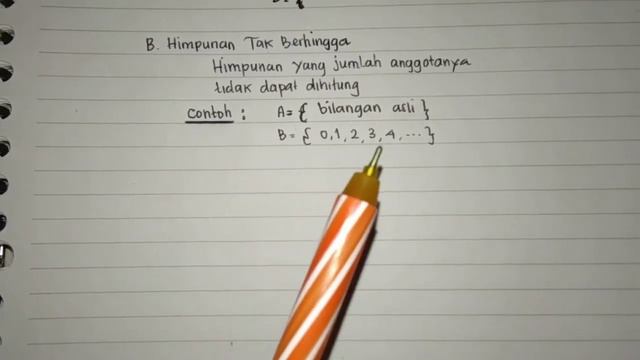 B. Himpunan Tak Berhingga
Himpunan yang jumlah anggotanya
tidak dapat dihitung
Contoh : A = { bilangan asli }
B = { 0, 1, 2, 3, 4, ... }